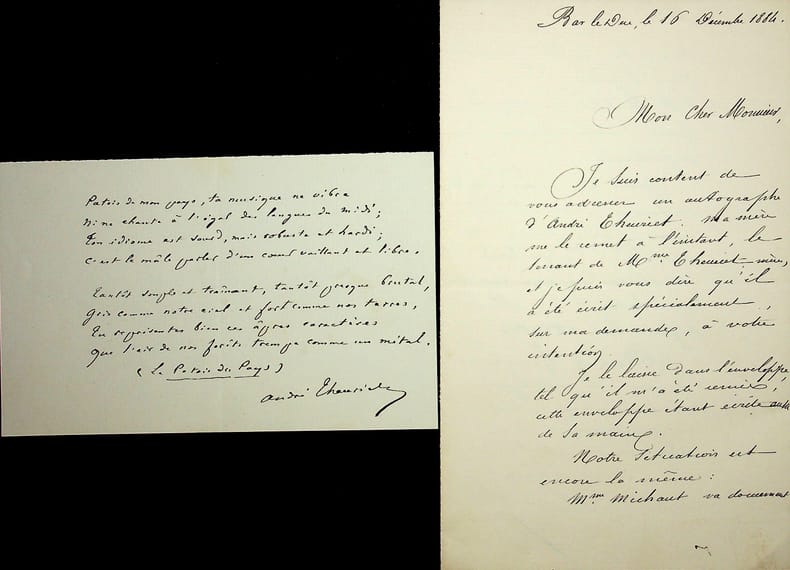 Patois de mon pays, ta musique ne vibre
Ni ne chante à l'égal des langues du midi;
Ton idiome est sourd, mais robuste et hardi;
C'est le mâle parler d'un cœur vaillant et libre.
Tantôt souple et traînant, tantôt presque brutal,
Gris comme notre ciel et fort comme nos terres,
Tu représentes bien ces âpres caractères
Que l'air de nos forêts trempe comme un métal.
(Le Patois du Pays)
André Theuriet
Bar le Duc, le 16 Décembre 1884.
Mon Cher Monsieur,
Je suis content de
vous adresser un autographe
d'André Theuriet. ma mère
me le remet à l'instant, le
tenant de Mme Theuriet mère,
et je puis vous dire qu'il
a été écrit spécialement,
sur ma demande, à votre
intention.
Je le laisse dans l'enveloppe
tel qu'il m'a été remis,
cette enveloppe étant écrite aussi
de sa main.
Notre situation est
encore la même:
Mme Michaut va doucement